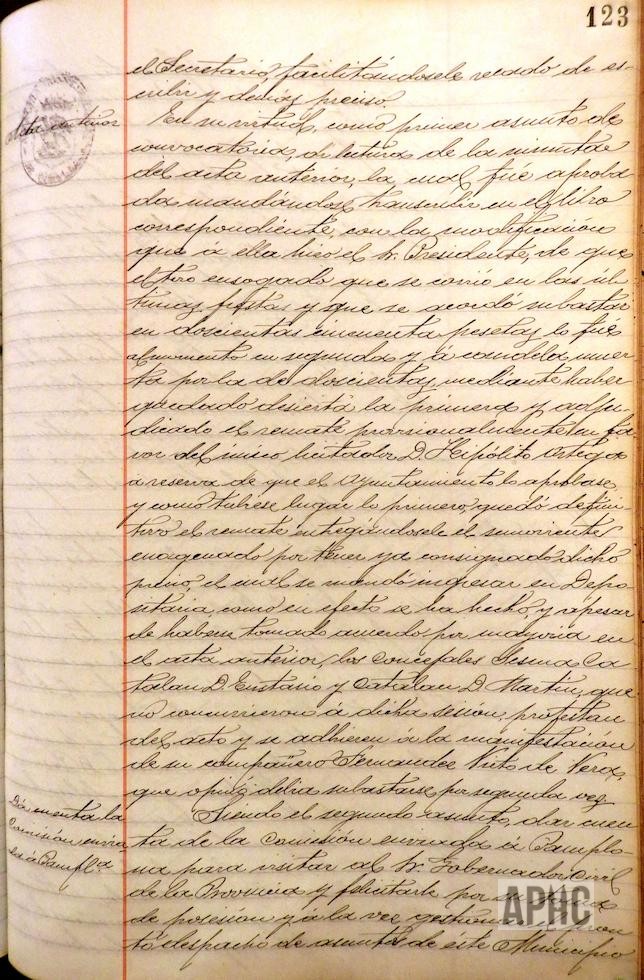 123
el Secretario, facilitándosele recado de es-
cribir y demás preciso.
Acta anterior
En su virtud, como primer asunto de
convocatoria, di lectura de la minuta
del acta anterior, la cual fué aproba
da mandándose transcribir en el libro
correspondiente, con la modificación
que á ella hizo el Sr. Presidente, de que
el toro ensogado que se corrió en las úl-
timas fiestas y que se acordó subastar
en doscientas cincuenta pesetas lo fué
al momento en segunda y á candela muer
ta por la de doscientas, mediante haber
quedado desierta la primera y adju-
dicado el remate provisionalmente en fa
vor del único licitador D. Hipólito Ortega
á reserva de que el Ayuntamiento lo aprobase
y como tubiese lugar lo primero, quedó defini
tivo el remate entregándosele el semoviente
enagenado por tener ya consignado dicho
precio, el cual se mandó ingresar en Depo-
sitaria, como en efecto se ha hecho, y apesar
de haberse tomado acuerdo por mayoria en
el acta anterior, los Concejales Sesma Ca
talan D. Eustasio y Catalan D. Martin, que
no concurrieron á dicha sesión, protestan
del acto y se adhieren á la manifestación
de su compañero Fernandez Vito de Vera,
que opinó debia subastarse por segunda vez
Dá cuenta la
Comisión envia
da á Pampl.ª
Siendo el segundo asunto, dar cuen
ta de la Comisión enviada á Pamplo-
na para visitar al Sr. Gobernador Civil
de la Provincia y felicitarle por su toma
de posesión y á la vez gestionar el pron
to despacho de asuntos de este Municipio
APHC